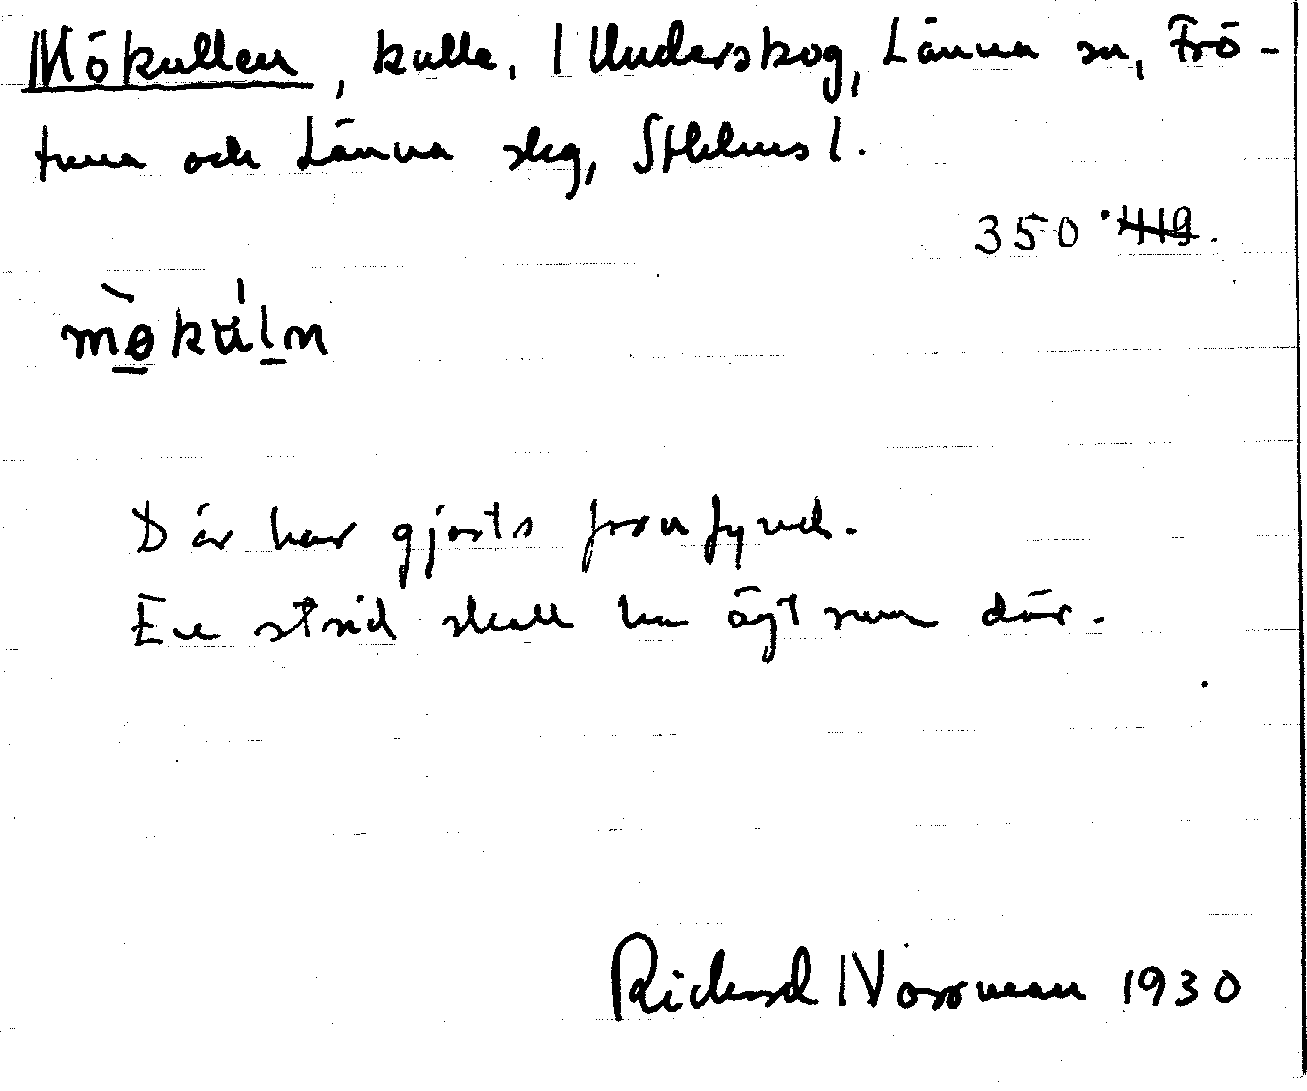 Mökullen, kulle, l Underskog, Länna sn, Frö-
tuna och Länna skg, Sthlms l.
350 · 419.
mökuln
Där har gjorts fornfynd.
En strid skall ha ägt rum där.
Rickard Norrman 1930